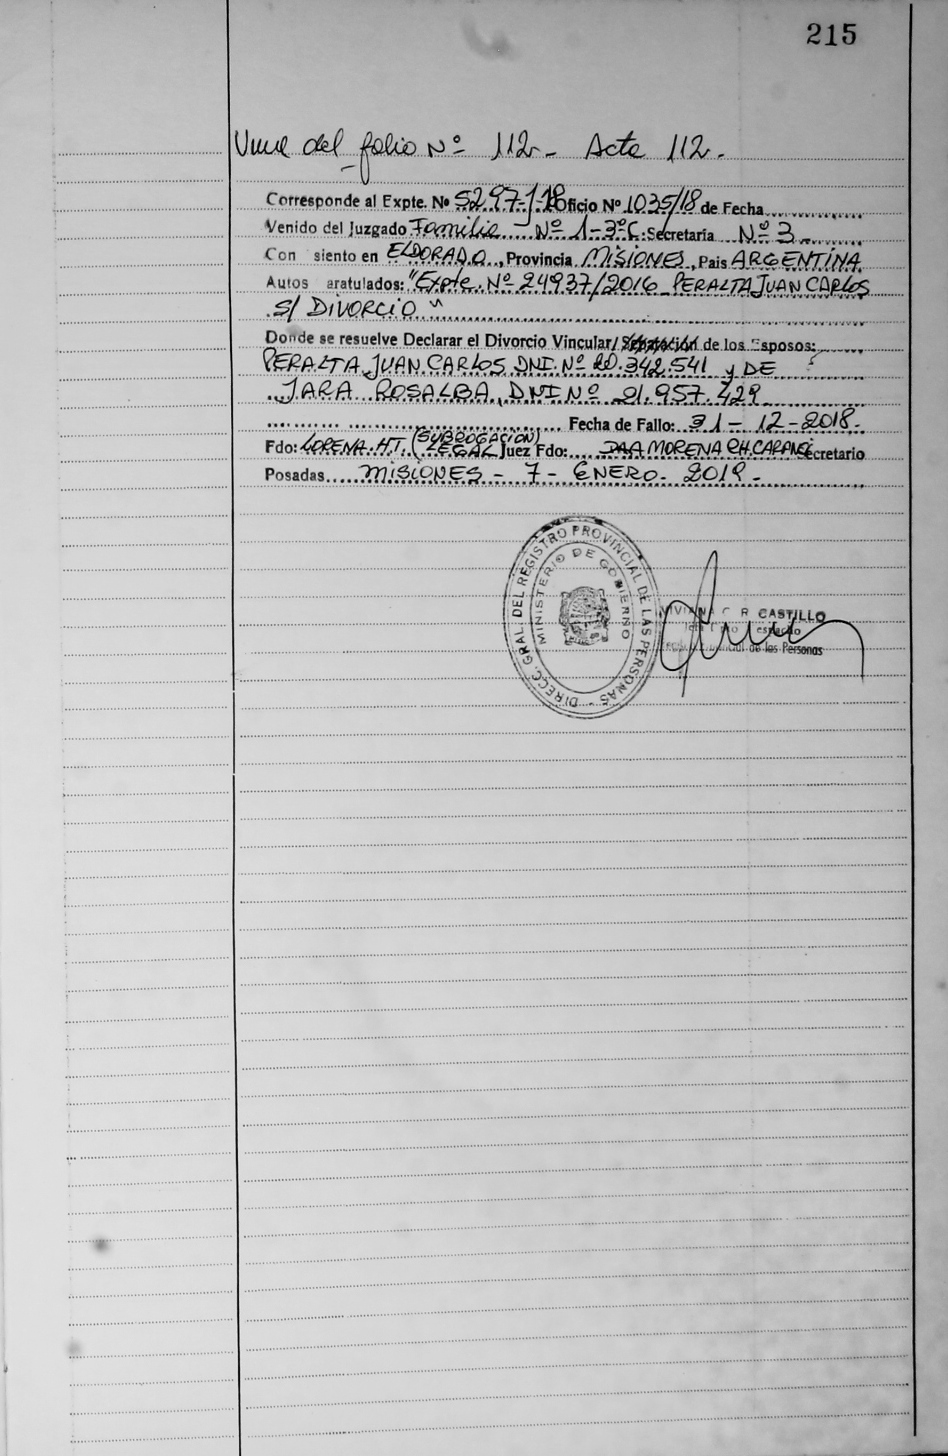 215
Viene del folio Nº 112 - Acta 112.
Corresponde al Expte. Nº 5297-J-18 Oficio Nº 1035/18 de Fecha
Venido del Juzgado Familia - Nº 1-3ºC. Secretaría Nº 3.
Con siento en ELDORADO, Provincia MISIONES, Pais ARGENTINA
Autos aratulados: "Expte. Nº 24937/2016 PERALTA JUAN CARLOS
S/ DIVORCIO"
Donde se resuelve Declarar el Divorcio Vincular/ Separación de los Esposos:
PERALTA JUAN CARLOS DNI. Nº 20.342.541 y DE
JARA ROSALBA, DNI Nº 21.957.429
Fecha de Fallo: 31-12-2018.
(SUBROGACION)
Fdo: LORENA HT. LEGAL Juez Fdo: MORENA Secretario
Posadas MISIONES - 7 - ENERO - 2019 -
DIRECC. GRAL. DEL REGISTRO PROVINCIAL DE LAS PERSONAS -
MINISTERIO DE GOBIERNO
VIVIANA C R CASTILLO
de las Personas